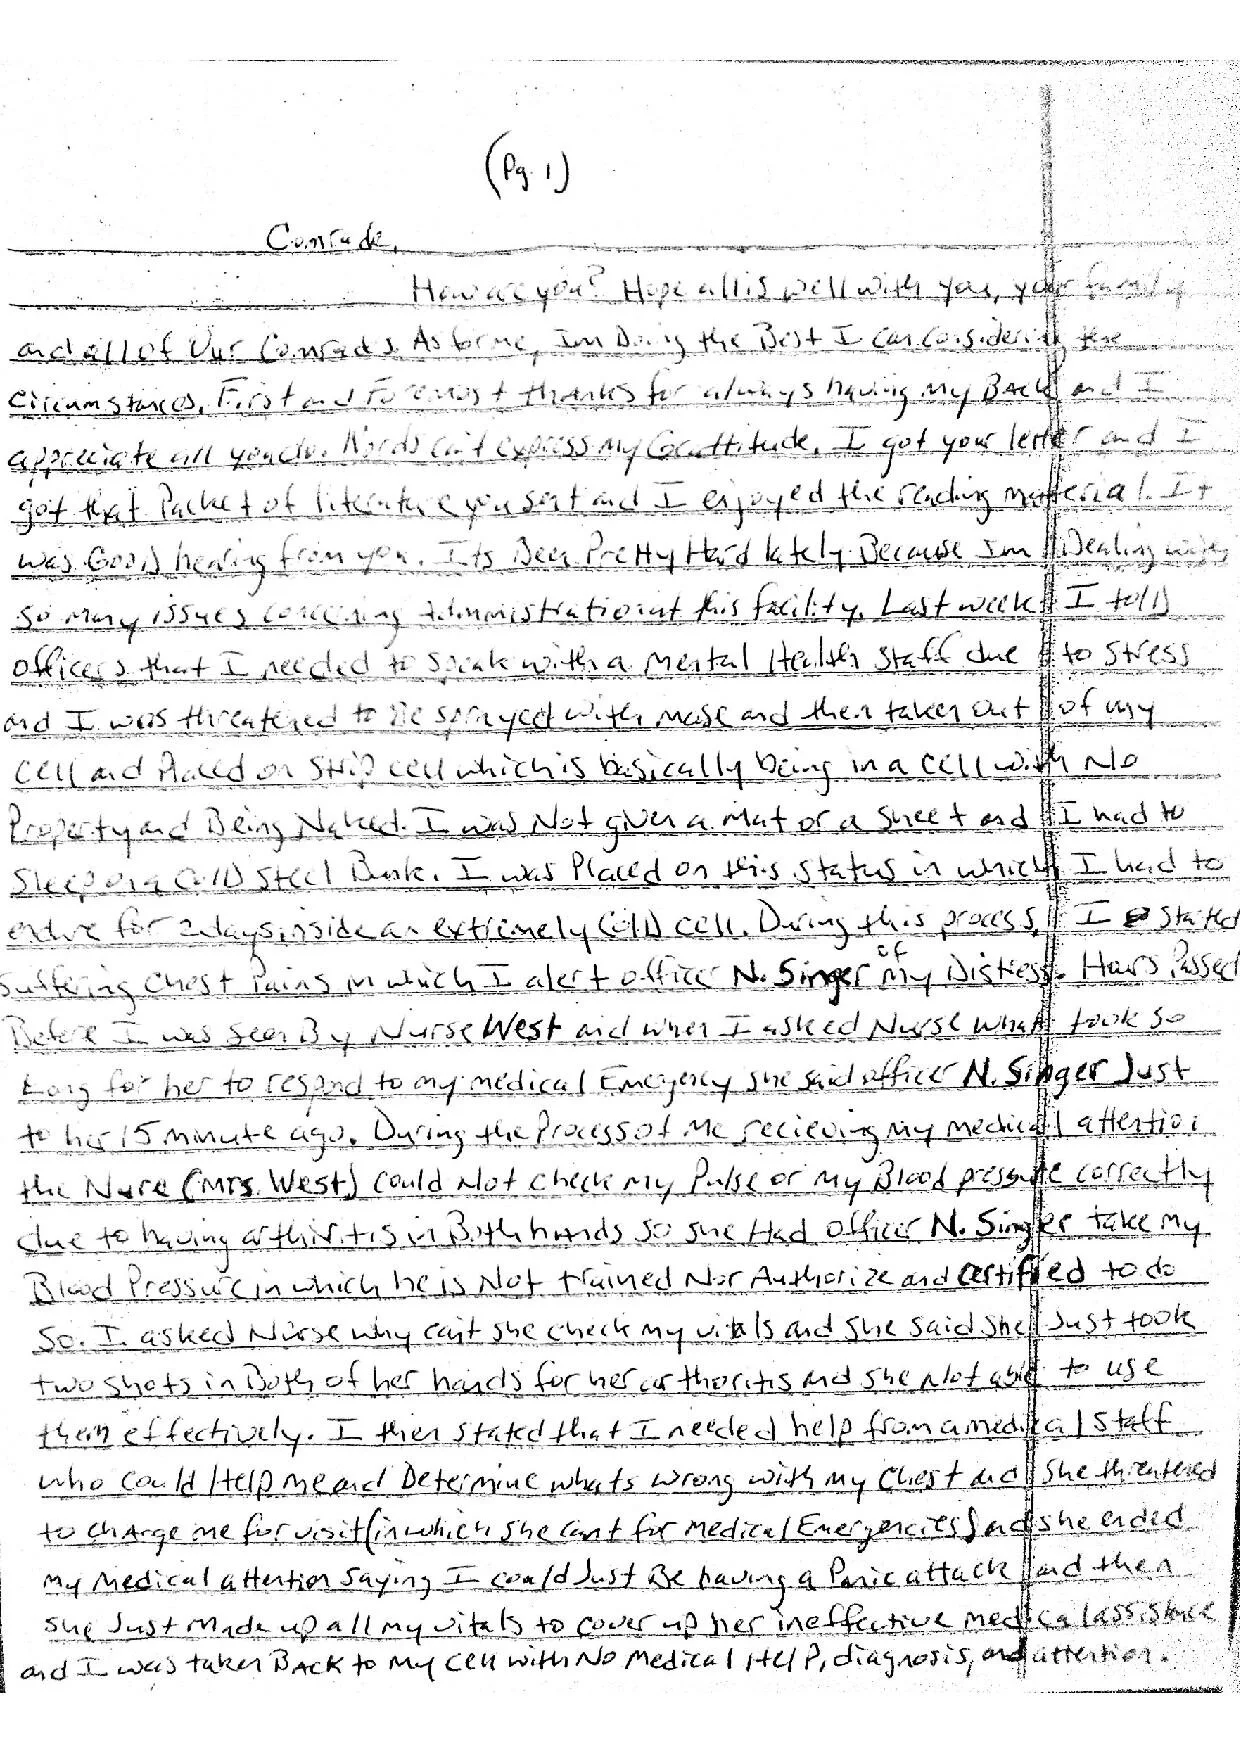 (Pg. 1)
Comrade,
How are you? Hope all is well with you, your family
and all of Our Comrads. As for me, Im Doing the Best I can considering the
circumstances. First and Foremost thanks for always having my BACK and I
appreciate all you do. Words can't express my Grattitude. I got your letter and I
got that Packet of literature you sent and I enjoyed the reading material. It
was Good hearing from you. Its Been Pretty Hard lately Because Im Dealing with
so many issues concerning administration at this facility. Last week I told
officers that I needed to speak with a mental Health Staff due to stress
and I was threatened to be sprayed with mase and then taken out of my
cell and Placed on strip cell which is basically being in a cell with No
Property and Being Naked. I was Not given a mat or a sheet and I had to
sleep on a cold steel Bunk. I was Placed on this status in which I had to
endure for 2 days inside an extremely cold cell. During this process, I started
suffering chest Pains in which I alert officer N. Singer of my Distress. Hours Passed
Before I was seen By Nurse West and when I asked Nurse what took so
Long for her to respond to my medical Emergency she said officer N. Singer Just
to her 15 minute ago. During the Process of me recieving my medical attention
the Nure (Mrs. West) could Not check my Pulse or my Blood pressure correctly
due to having arthiritis in Both hands so she Had officer N. Singer take my
Blood Pressure in which he is Not trained Nor Authorize and certified to do
so. I asked Nurse why can't she check my vitals and she said she Just took
two shots in Both of her hands for her arthoritis and she Not able to use
them effectively. I then stated that I needed help from a medical Staff
who could Help me and Determine whats wrong with my chest and she threatened
to charge me for visit (in which she cant for Medical Emergencies) and she ended
my Medical attention saying I could Just Be having a Panic attack and then
she Just Made up all my vitals to cover up her ineffective medical assistance
and I was taken BACK to my cell with No Medical HELP, diagnosis, and attention.